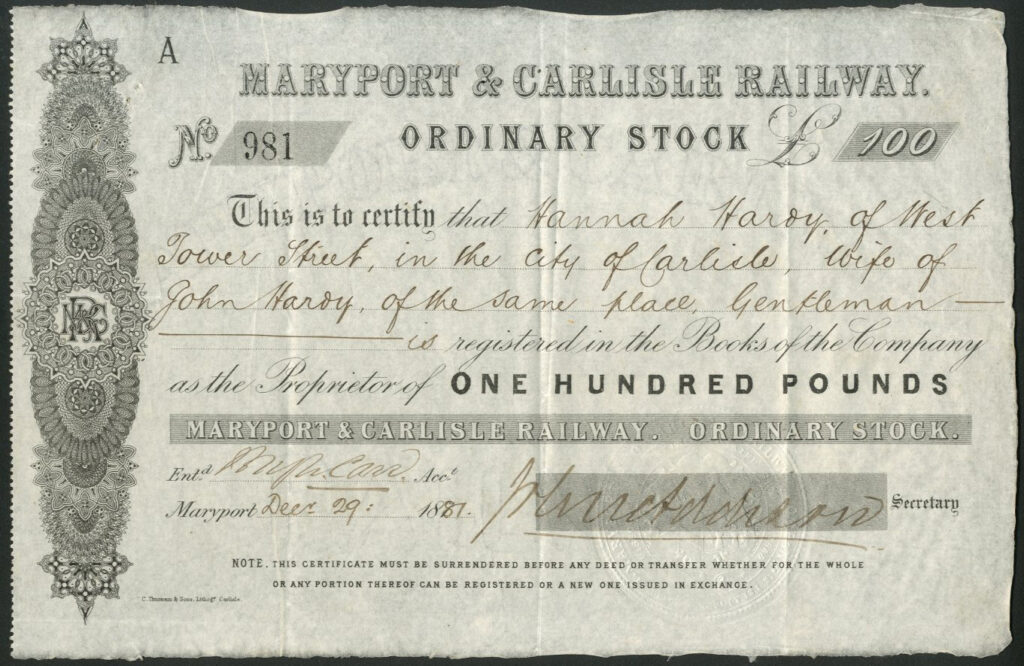 A
MARYPORT & CARLISLE RAILWAY.
No. 981 ORDINARY STOCK £ 100
This is to certify that Hannah Hardy, of West
Tower Street, in the city of Carlisle, Wife of
John Hardy, of the same place, Gentleman —
— is registered in the Books of the Company
as the Proprietor of ONE HUNDRED POUNDS
MARYPORT & CARLISLE RAILWAY. ORDINARY STOCK.
Entd. Carr. Acct.
Maryport Decr. 29: 1881. Addison Secretary
NOTE. THIS CERTIFICATE MUST BE SURRENDERED BEFORE ANY DEED OR TRANSFER WHETHER FOR THE WHOLE
OR ANY PORTION THEREOF CAN BE REGISTERED OR A NEW ONE ISSUED IN EXCHANGE.
C. Thurnam & Sons, Lithogrs. Carlisle.